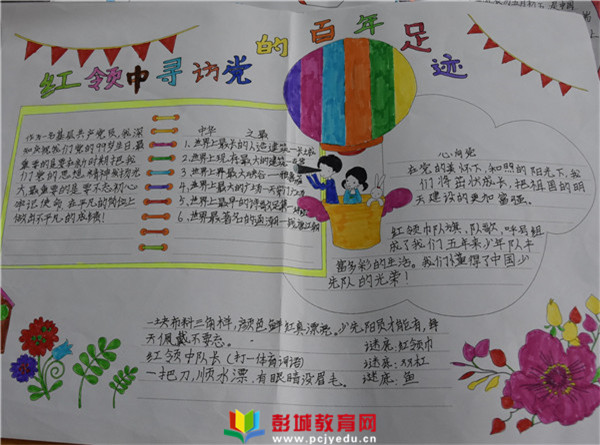 红领巾寻访党的百年足迹
作为一名基层共产党员,我深
知庆祝我们党的99岁生日,最
重要的是要和新时期把我
们党的思想精神发扬光
大,最重要的是要不忘初心
牢记使命 在平凡的岗位上
做出不平凡的成绩!
中华 之最
1、世界上最长的人造建筑—长城
2、世界上现存最大的建筑—故宫
3、世界上
4、世界上最大的广场—天安门
5、世界上最早的
6、世界最著名的
心向党
在党的关怀下,和煦的阳光下,我
们将茁壮成长,把祖国的明
天建设的更加富强。
红领巾队旗,队歌,呼号组
成了我们五年来少年队丰
富多彩的生活。我们懂得了中国少
先队的光荣!
一块布料三角样,颜色鲜红真漂亮。少先队员才能有,每
天佩戴不要忘。 谜底:红领巾
红领巾队长(打一体育词语) 谜底:双杠
一把刀,顺水漂,有眼睛没眉毛。 谜底:鱼
彭城教育网
www.pcjyedu.cn